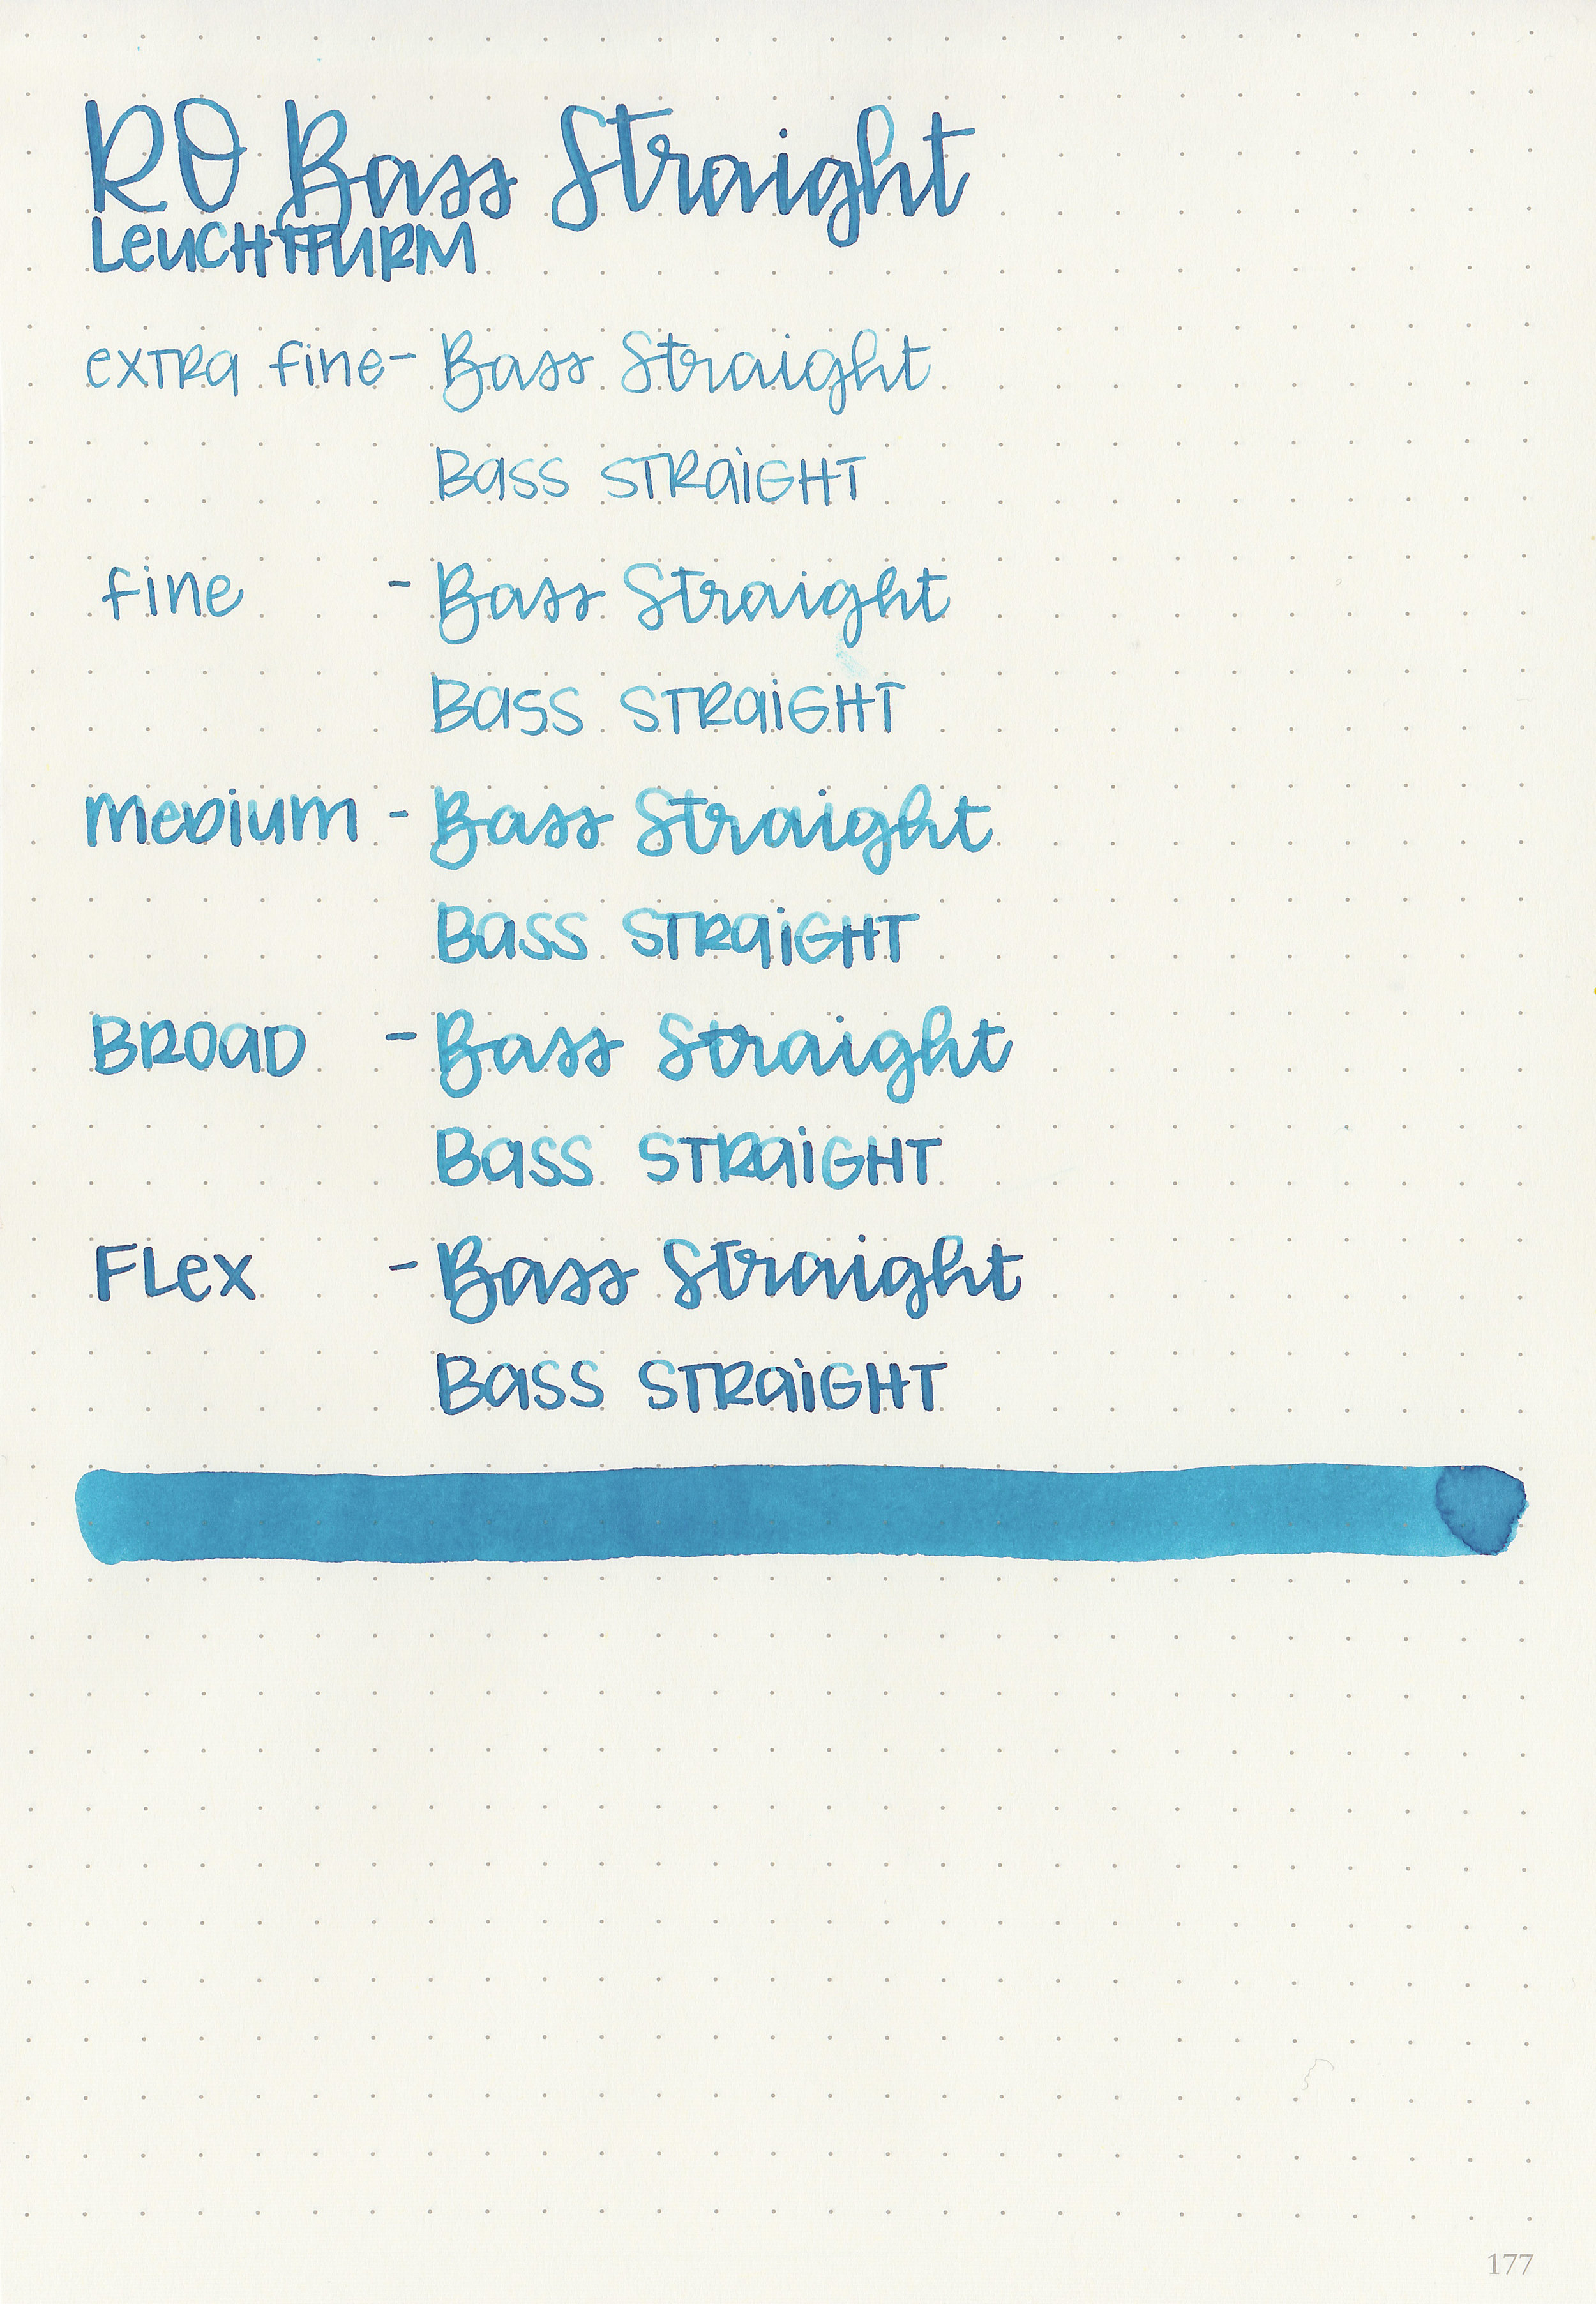 RO Bass Straight
LeUCHTTURM
exTRa fine- Bass Straight
Bass STRaiGHT
fine - Bass Straight
Bass STRaiGHT
meDium - Bass Straight
Bass STRaiGHT
BROaD - Bass Straight
Bass STRaiGHT
FLex - Bass Straight
Bass STRaiGHT
177